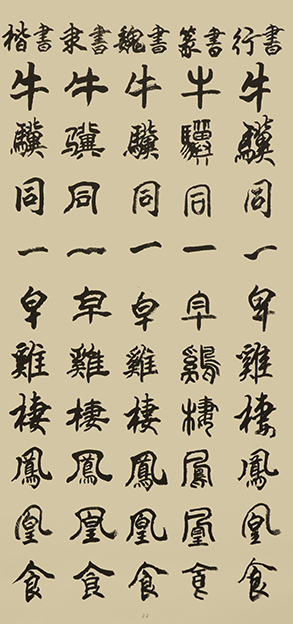 楷書
牛驥同一皁雞棲鳳凰食
隶書
牛驥同一皁雞棲鳳凰食
魏書
牛驥同一皁雞棲鳳凰食
篆書
牛驥同一皁雞棲鳳凰食
行書
牛驥同一皁雞棲鳳凰食